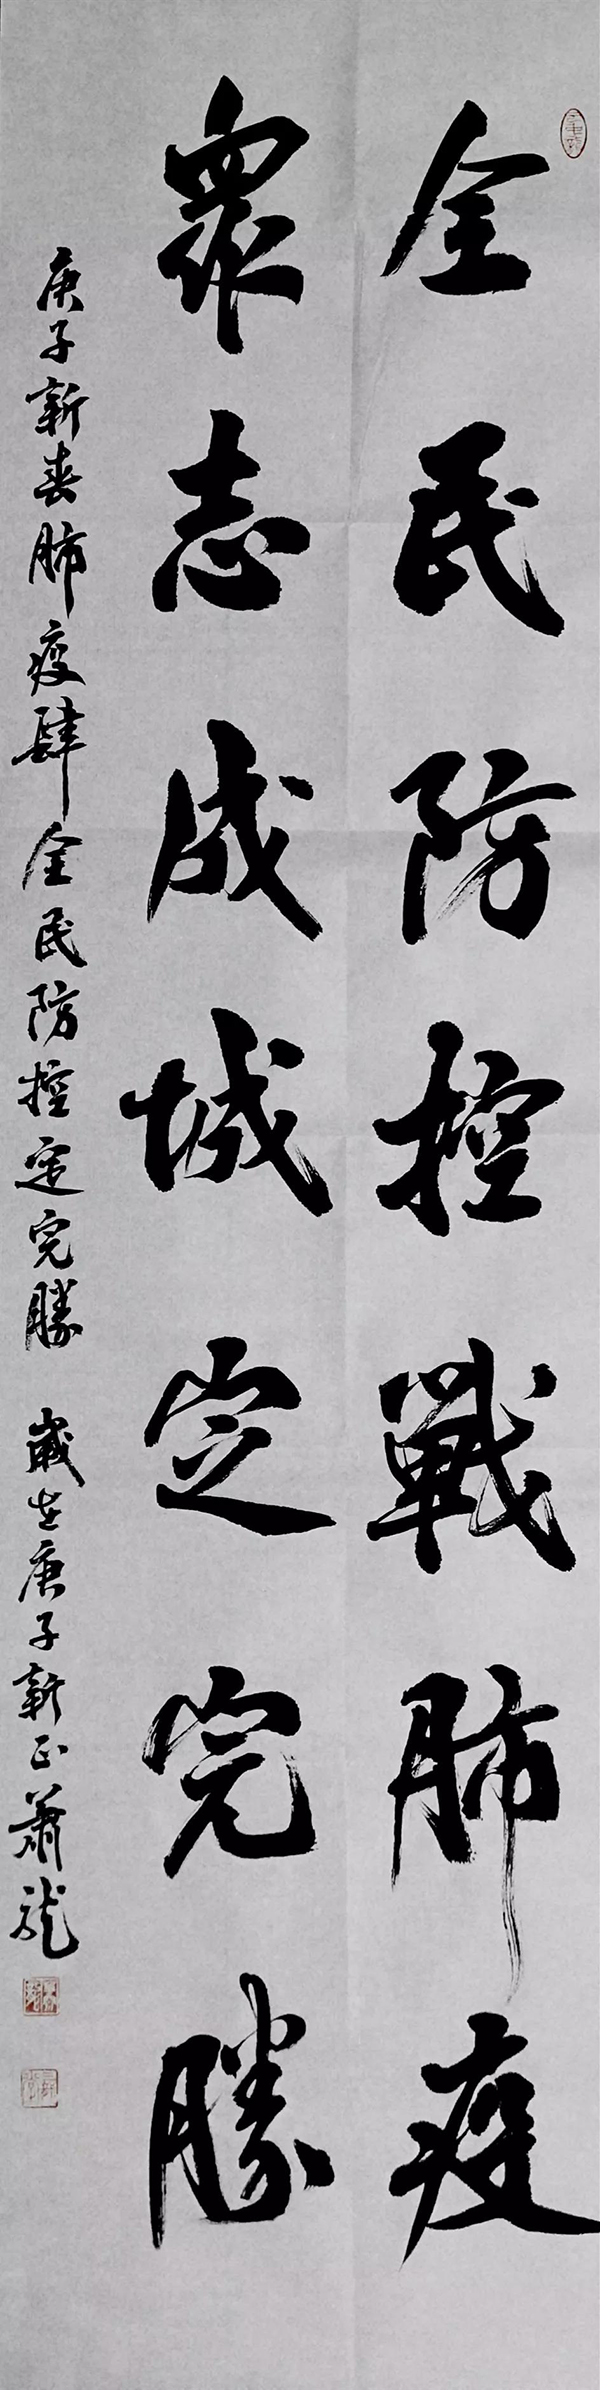 全民防控戰肺疫
眾志成城定完勝
庚子新春肺疫肆全民防控定完勝 歲在庚子新正蕭龍